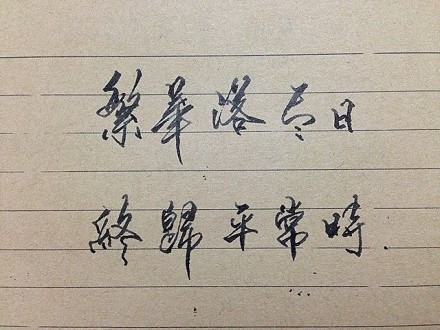 繁華落尽日
終歸平常時.